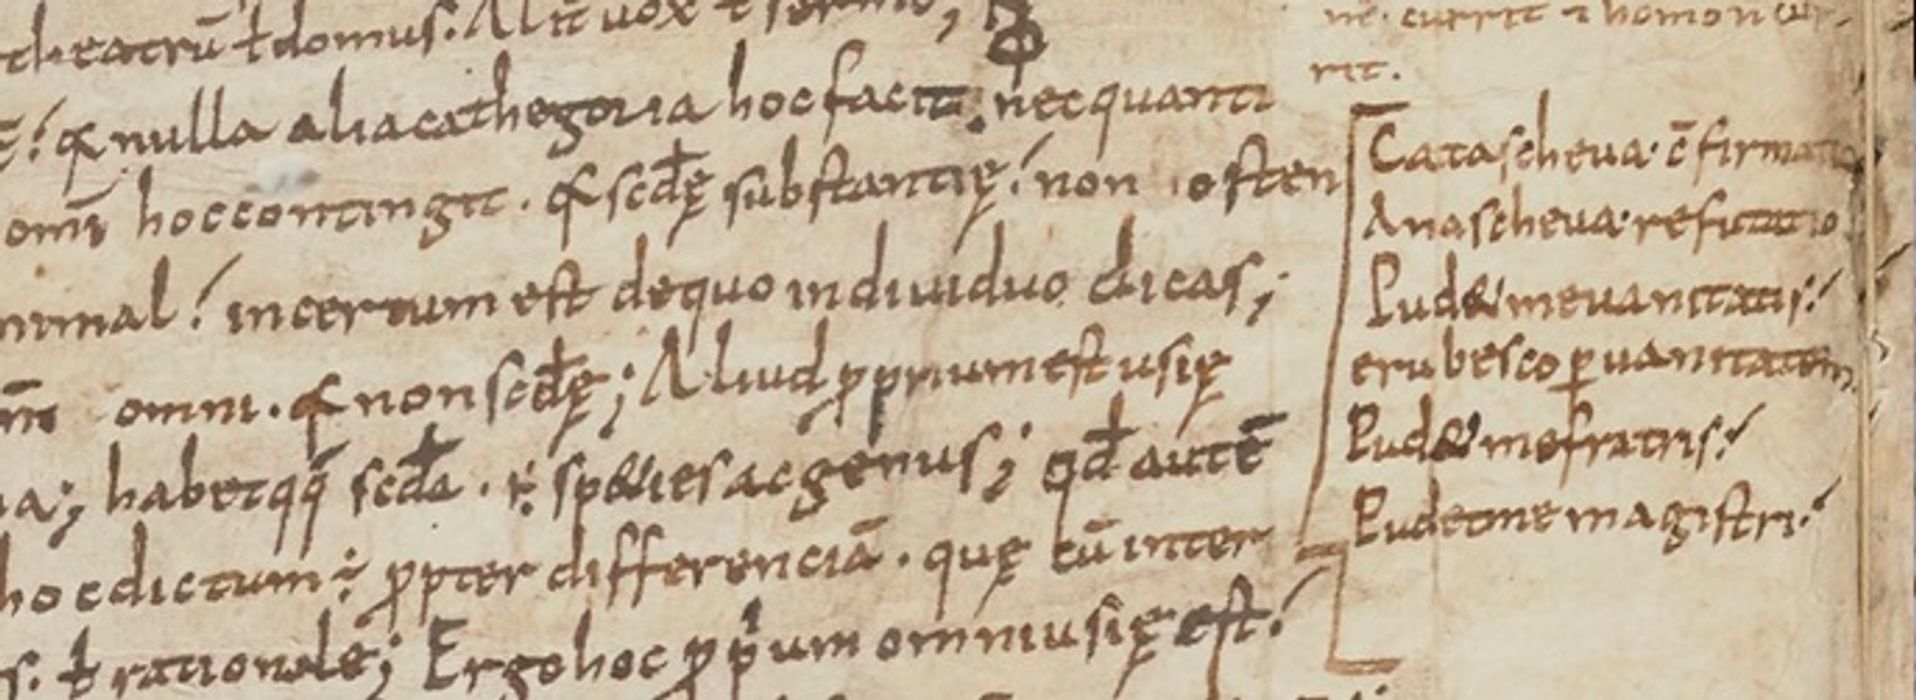 theatrū ł domus. Alit uox ł sermo;
& nulla alia cathegoria hoc facit. nec quanti
omī hoc contingit. & scdę substantię. non osten
nimal. incertum est de quo indiuiduo dicas;
omni. & non scdę; Aliud pprium est usię
habet qq; scda. species ac genus; qd autē
hoc dictum; ppter differenciā. quę cū inter
s. ł rationale; Ergo hoc pprium omni usię est.
currit homo n cur
rit.
Catascheua. c̄firmatio
Anascheua. refutatio
Pud& me uanitatis.
erubesco p uanitatem
Pud& me fratris.
Pudetne magistri.